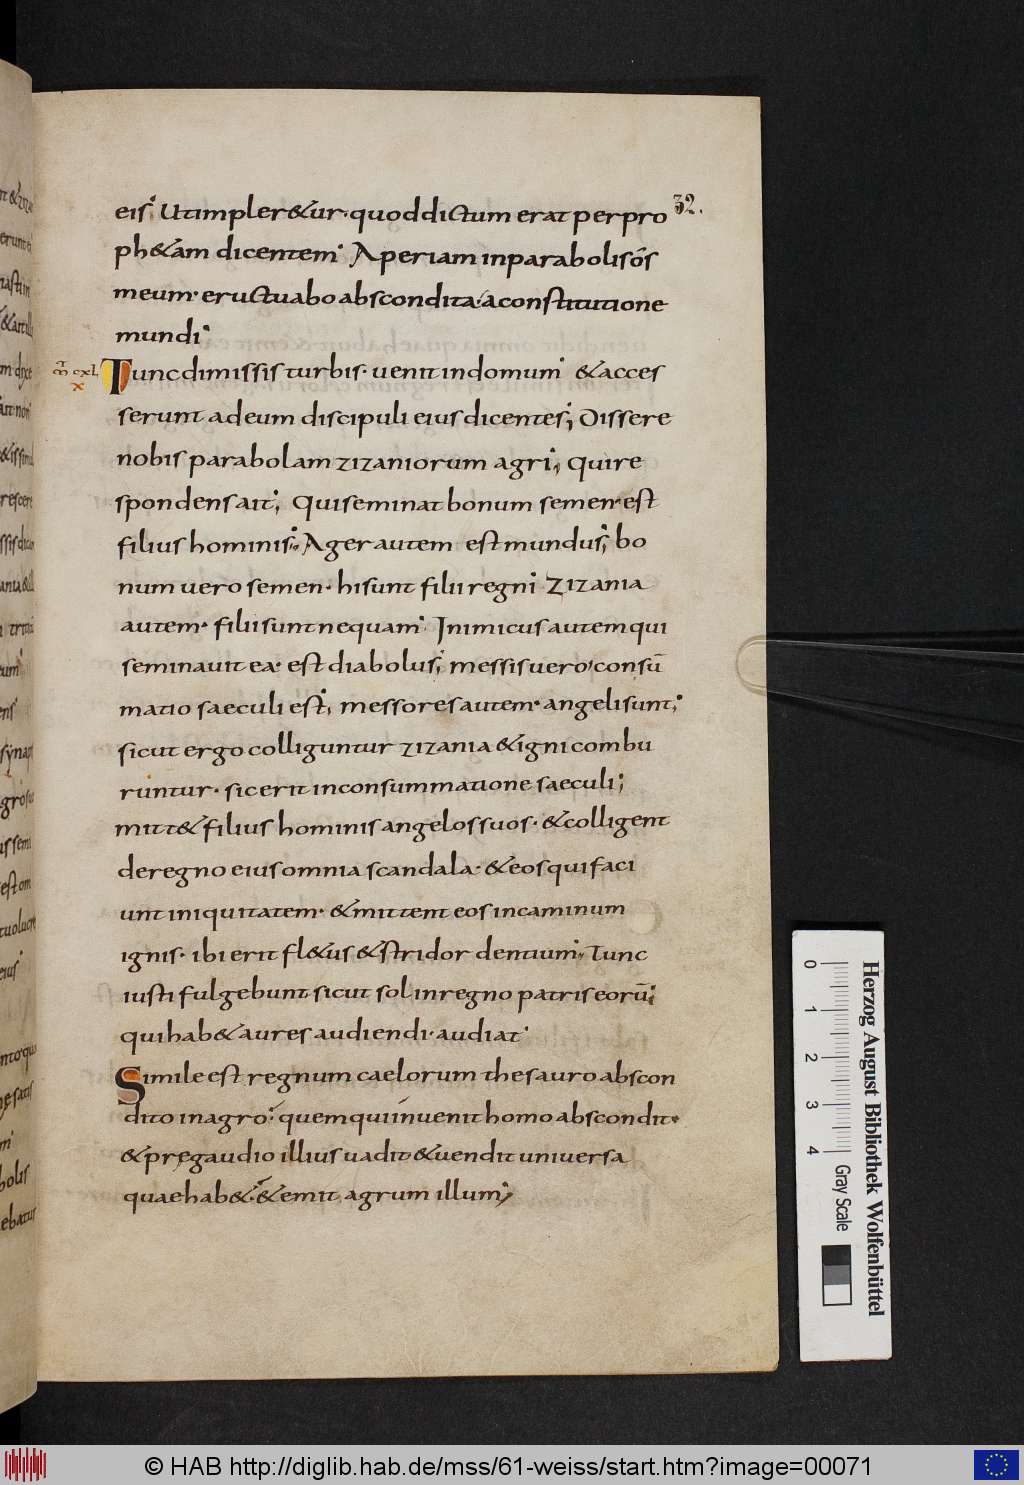 32.
eis; Ut impler&ur· quod dictum erat per pro
ph&am dicentem; Aperiam in parabolis ós
meum· eructuabo abscondita· a constitutione
mundi;
m̄ cxl, x Tunc dimissis turbis· uenit in domum; & acces
serunt ad eum discipuli eius dicentes; Dissere
nobis parabolam zizaniorum agri; qui re
spondens ait; Qui seminat bonum semen· est
filius hominis; Ager autem est mundus; bo
num uero semen· hi sunt filii regni; zizania
autem· filii sunt nequam; Inimicus autem qui
seminauit ea· est diabolus; messis uero consū
matio saeculi est; messores autem· angeli sunt;
sicut ergo colliguntur zizania & igni combu
runtur· sic erit in consummatione saeculi;
mitt& filius hominis angelos suos· & colligent
de regno eius omnia scandala· & eos qui faci
unt iniquitatem· & mittent eos in caminum
ignis· ibi erit fl&us & stridor dentium; Tunc
iusti fulgebunt sicut sol in regno patris eorū;
qui hab& aures audiendi· audiat;
Simile est regnum caelorum thesauro abscon
dito in agro; quem qui inuenit homo abscondit·
& prę gaudio illius uadit & uendit uniuersa
quae hab&· & emit agrum illum;
Herzog August Bibliothek Wolfenbüttel
0 1 2 3 4 Gray Scale
© HAB http://diglib.hab.de/mss/61-weiss/start.htm?image=00071